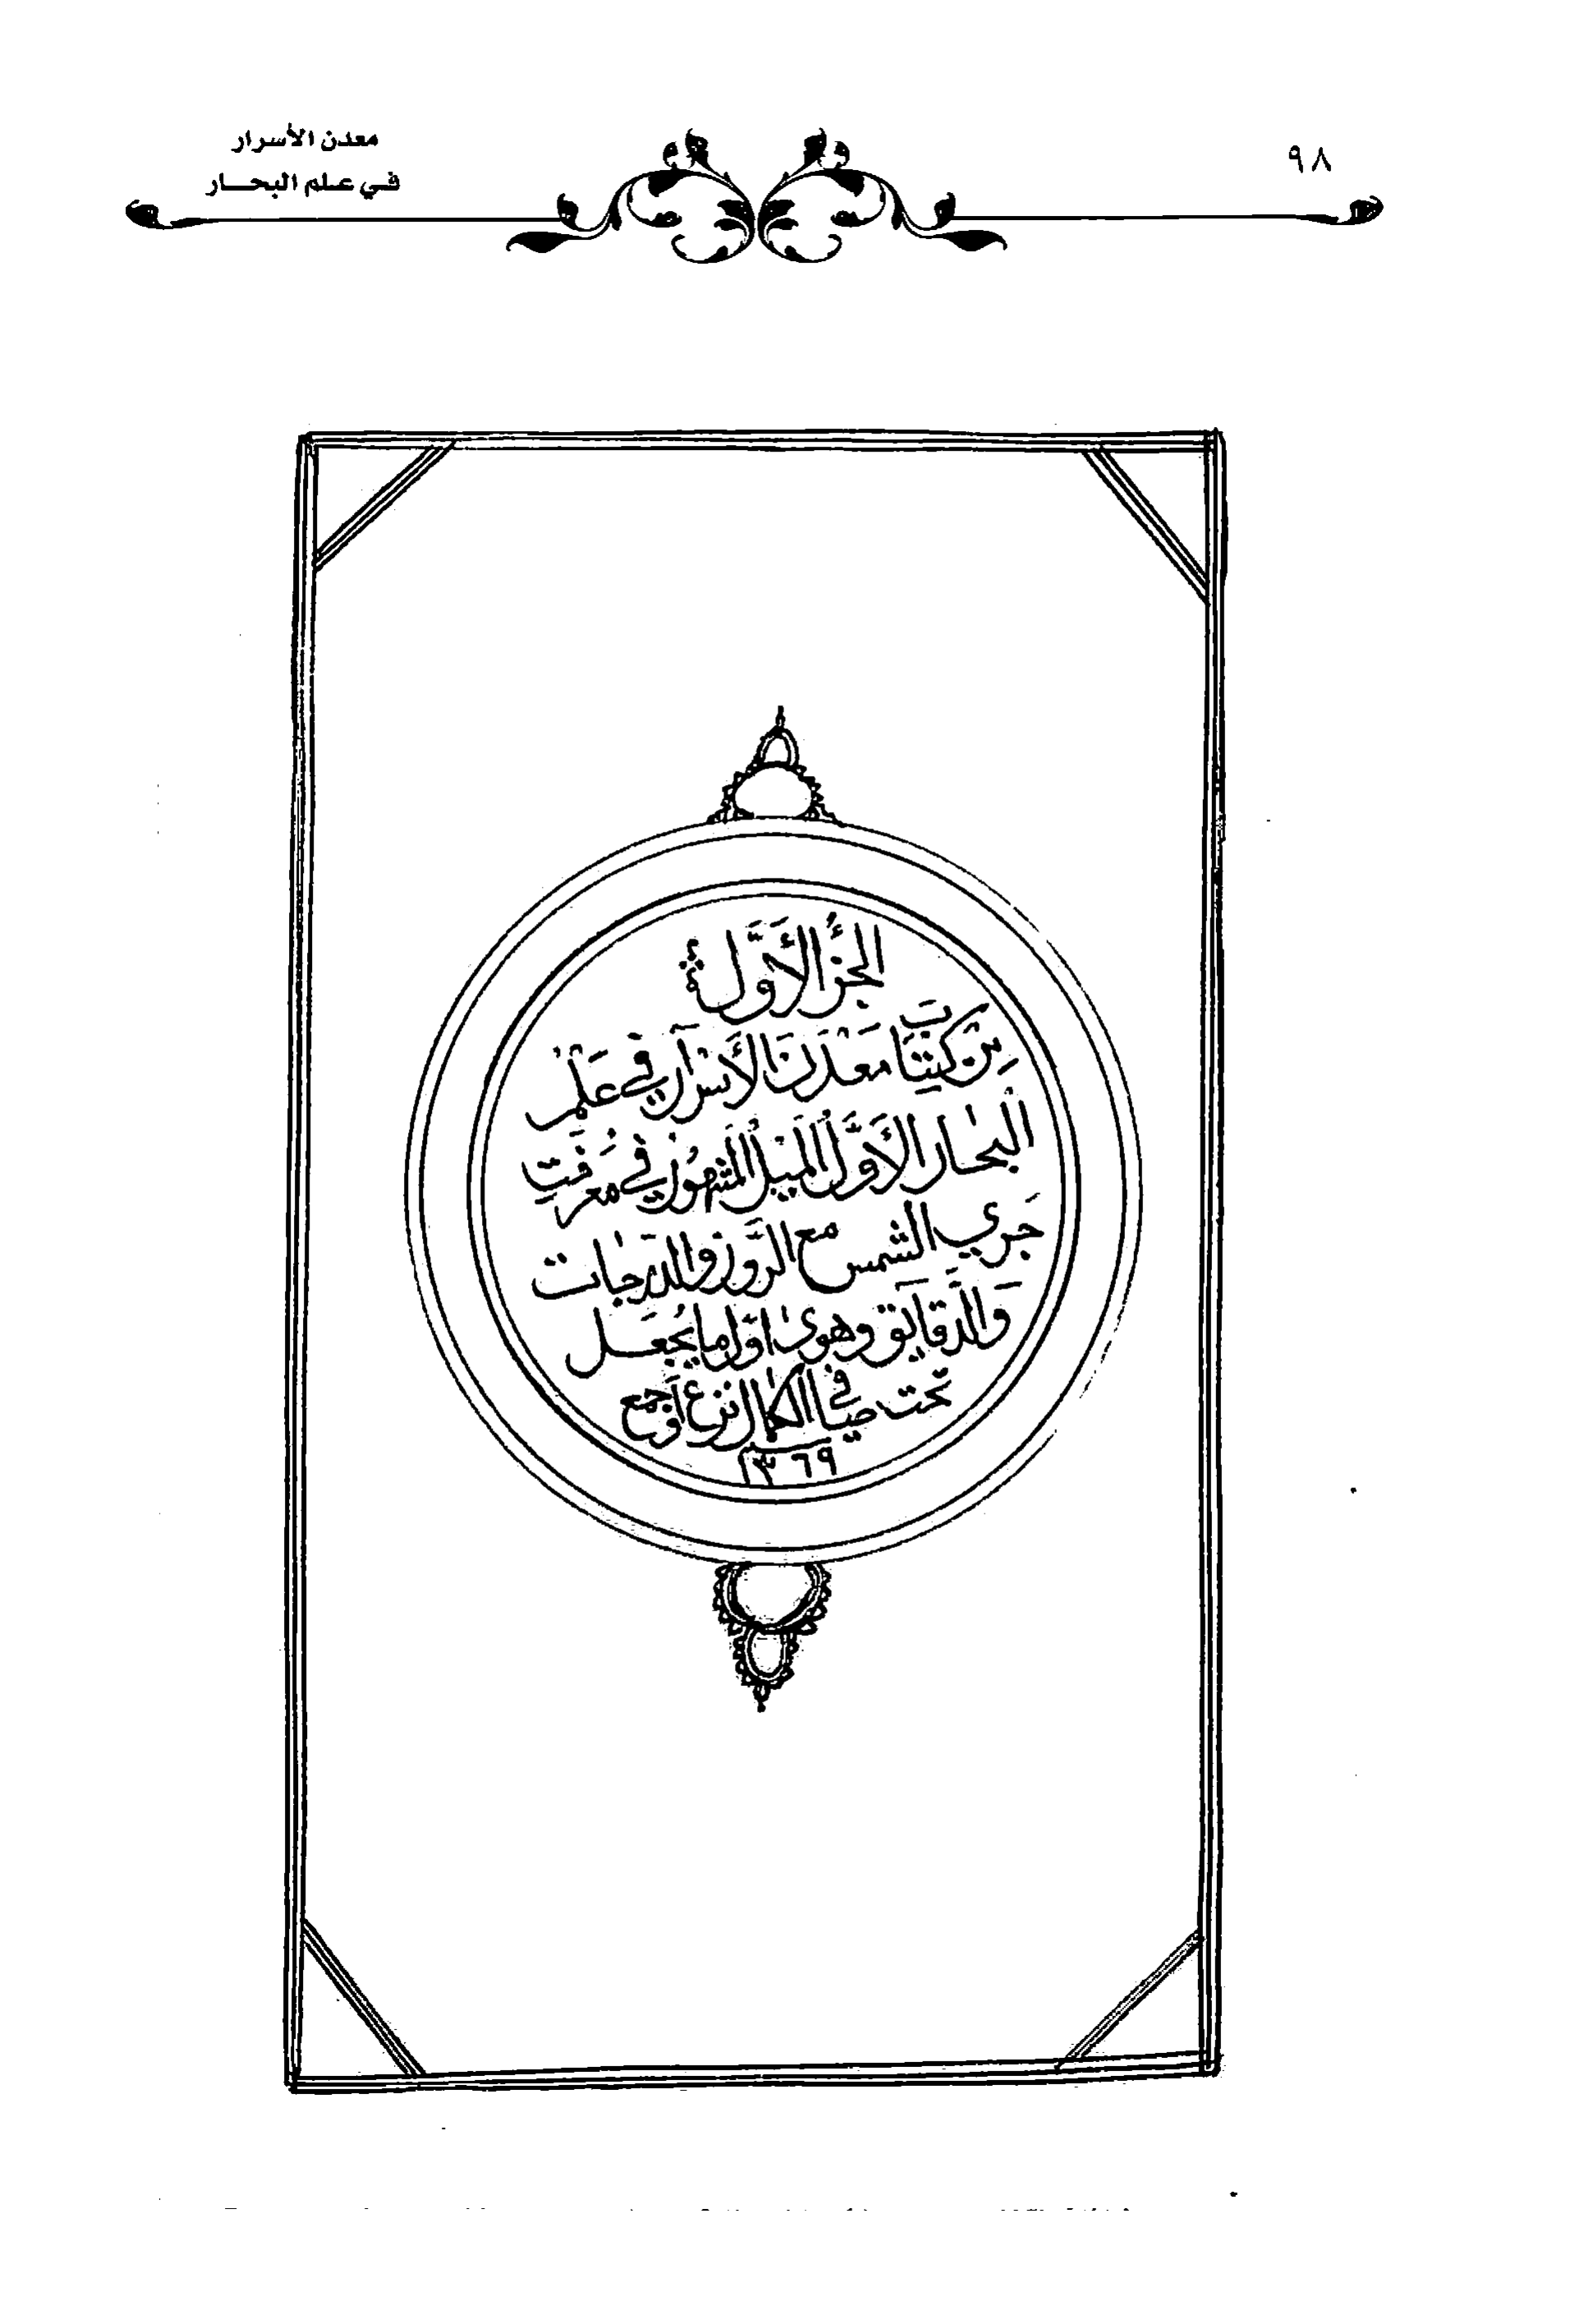 ٩٨
معدن الأسرار
في علم البحار
الجزُ الأَوَّل
مِنْ كِتَابَ مَعْدَنَ الأَسْرَار في عَلْمْ
البحَار الأَوَّل المَيْل المشهُور في معرفَت
جَري الشمس مع الرَّوز والدرجات
وَالدَّقايَق وهوى اوّل ما يُجعَل
تحت في الكمال نزع أوجمع
١٣٦٩